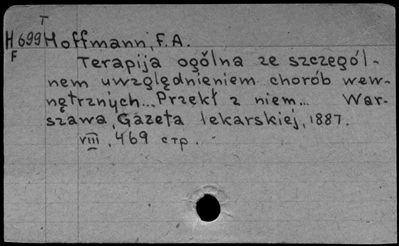 T
H699 Hoffmann, F.A.
F
Terapija ogólna ze szczegól-
nem uwzględnieniem chorób wew-
nętrznych... Przekł z niem... War-
szawa, Gazeta lekarskiej, 1887.
VIII, 469 стр.